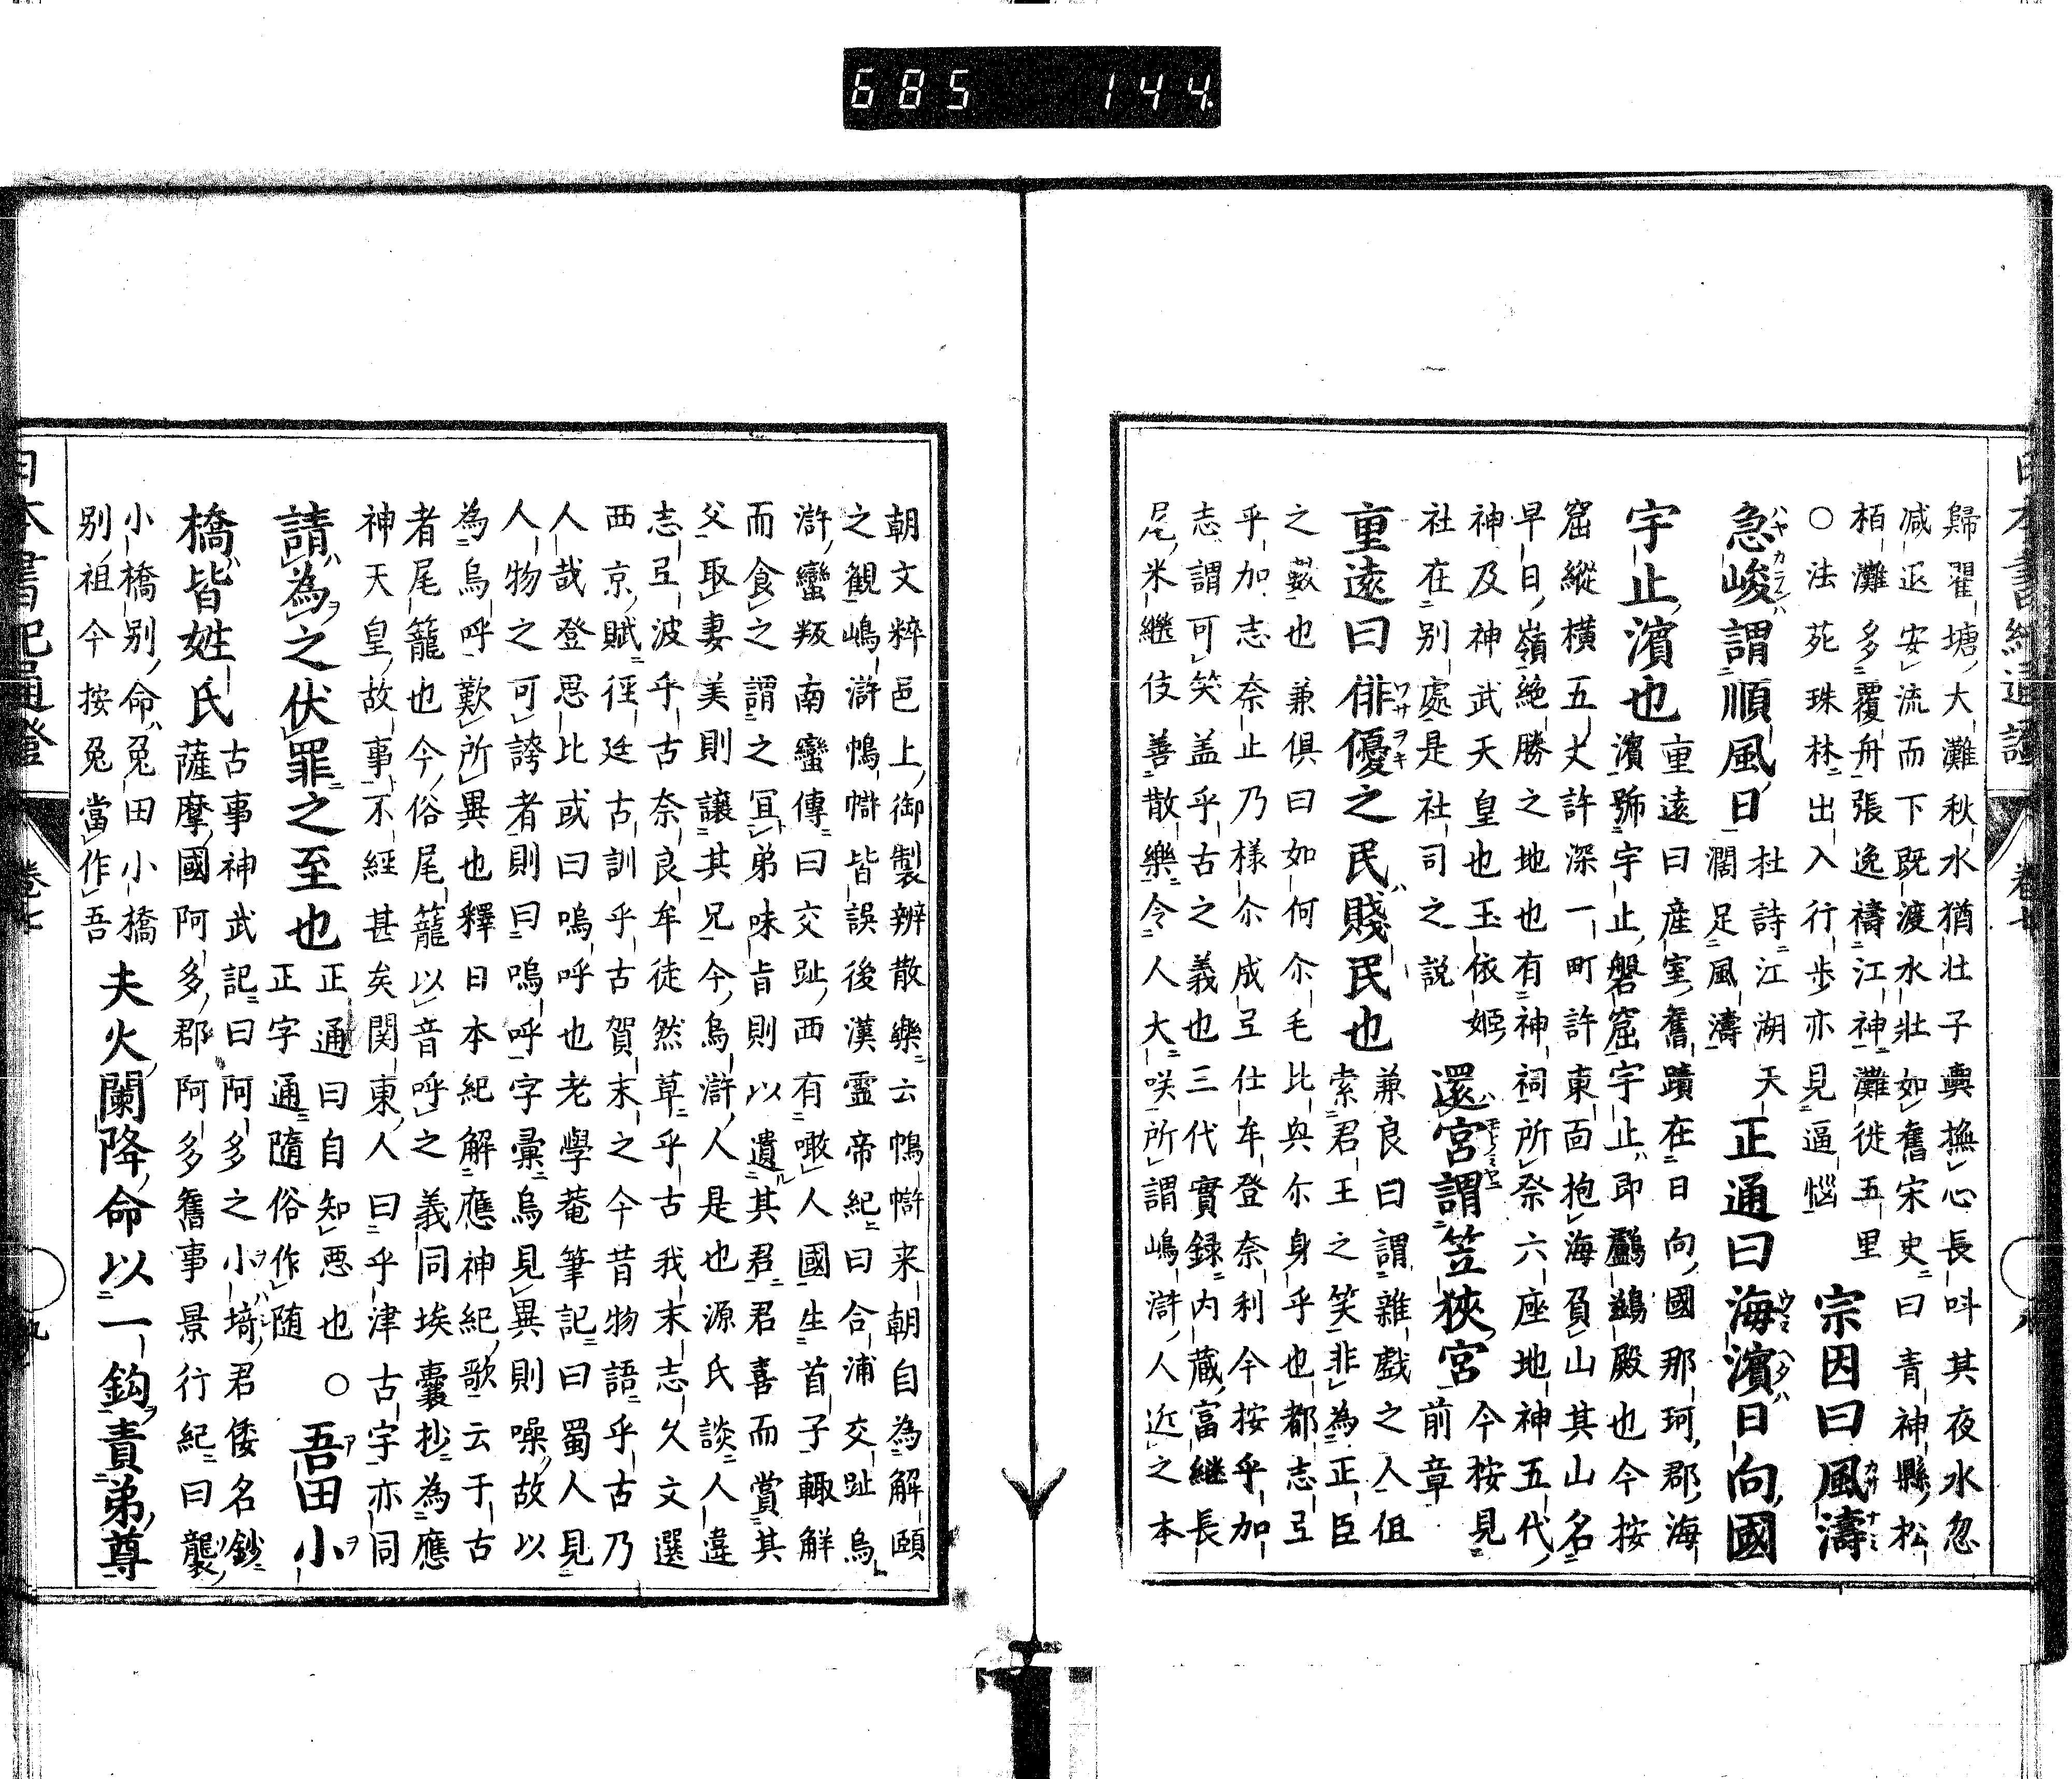 685 144
歸瞿塘大灘秋水猶壯子輿撫心長呌其夜水忽
減𨒪安流而下既渡水壯如舊宋史曰青神縣松
栢灘多覆舟張逸禱江神灘徙五里
宗因曰風濤
○法苑珠林出入行歩亦見逼惱
急峻謂順風日
杜詩江湖天
濶足風濤
正通曰海濱日向國
宇止濱也
重遠曰産室舊蹟在日向國那珂郡海
濱號宇止磐窟宇止即鸕鷀殿也今按
窟縱横五丈許深一町許東面抱海負山其山名
早日嶺絶勝之地也有神祠所祭六座地神五代
神及神武天皇也玉依姫
社在別處是社司之説
還宮謂笠狹宮
今桉見
前章
重遠曰俳優之民賤民也
兼良曰謂雜戲之人伹
索君王之笑非為正臣
之藪也兼倶曰如何尒毛比與尓身乎也都志𢎞
乎加志奈止乃様尒成𢎞仕牟登奈利今按乎加
志謂可笑盖乎古之義也三代實録内蔵富継長
尾米継伎善散樂令人大咲所謂嶋滸人近之本
朝文粹邑上御製辨散樂云㠀㠏来朝自為解頤
之觀嶋滸㠀㠏皆誤後漢靈帝紀曰合浦交趾烏
滸蠻叛南蠻傳曰交趾西有噉人國生首子輙解
而食之謂之宜弟味旨則以遺其君君喜而賞其
父取妻美則讓其兄今烏滸人是也源氏談人違
志𢎞波乎古奈良牟徒然草乎古我末志久文選
西京賦徑廷古訓乎古賀末之今昔物語乎古乃
人哉登思比或曰嗚呼也老學菴筆記曰蜀人見
人物之可誇者則曰嗚呼字彙烏見異則噪故以
為烏呼歎所異也釋日本紀解應神紀歌云于古
者尾籠也今俗尾籠以音呼之義同埃嚢抄為應
神天皇故事不經甚矣関東人曰乎津古字亦同
請為之伏罪之至也
正通曰自知悪也
正字通隨俗作随
○吾田小
橋皆姓氏
古事神武記曰阿多之小埼君倭名鈔
薩摩國阿多郡阿多舊事景行紀曰襲
小橋別命兔田小橋
別祖今按兔當作吾
夫火闌降命以一鈎責弟尊